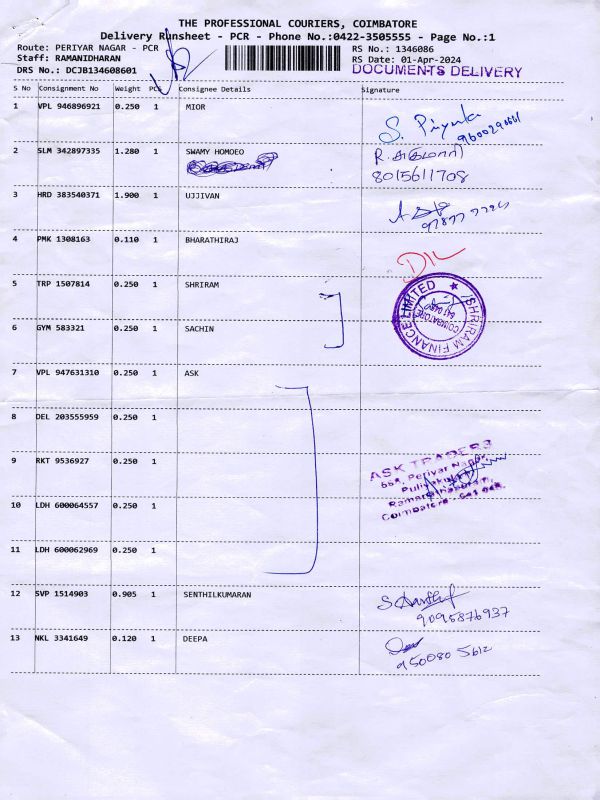 THE PROFESSIONAL COURIERS, COIMBATORE
Delivery Runsheet - PCR - Phone No.:0422-3505555 - Page No.:1
Route: PERIYAR NAGAR - PCR RS No.: 1346086
Staff: RAMANIDHARAN RS Date: 01-Apr-2024
DRS No.: DCJB134608601 DOCUMENTS DELIVERY
S No Consignment No Weight PCS Consignee Details Signature
1 VPL 946896921 0.250 1 MIOR
S. Priyanka
2 SLM 342897335 1.280 1 SWAMY HOMOEO
8015611708
3 HRD 383540371 1.900 1 UJJIVAN
4 PMK 1308163 0.110 1 BHARATHIRAJ
D/L
5 TRP 1507814 0.250 1 SHRIRAM
SHRIRAM FINANCE LIMITED
COIMBATORE
6 GYM 583321 0.250 1 SACHIN
7 VPL 947631310 0.250 1 ASK
8 DEL 203555959 0.250 1
9 RKT 9536927 0.250 1
ASK TRADERS
Periyar Nagar,
Puliyakulam
Ramanathapuram,
Coimbatore - 641 045.
10 LDH 600064557 0.250 1
11 LDH 600062969 0.250 1
12 SVP 1514903 0.905 1 SENTHILKUMARAN
9095876937
13 NKL 3341649 0.120 1 DEEPA
950080 5612